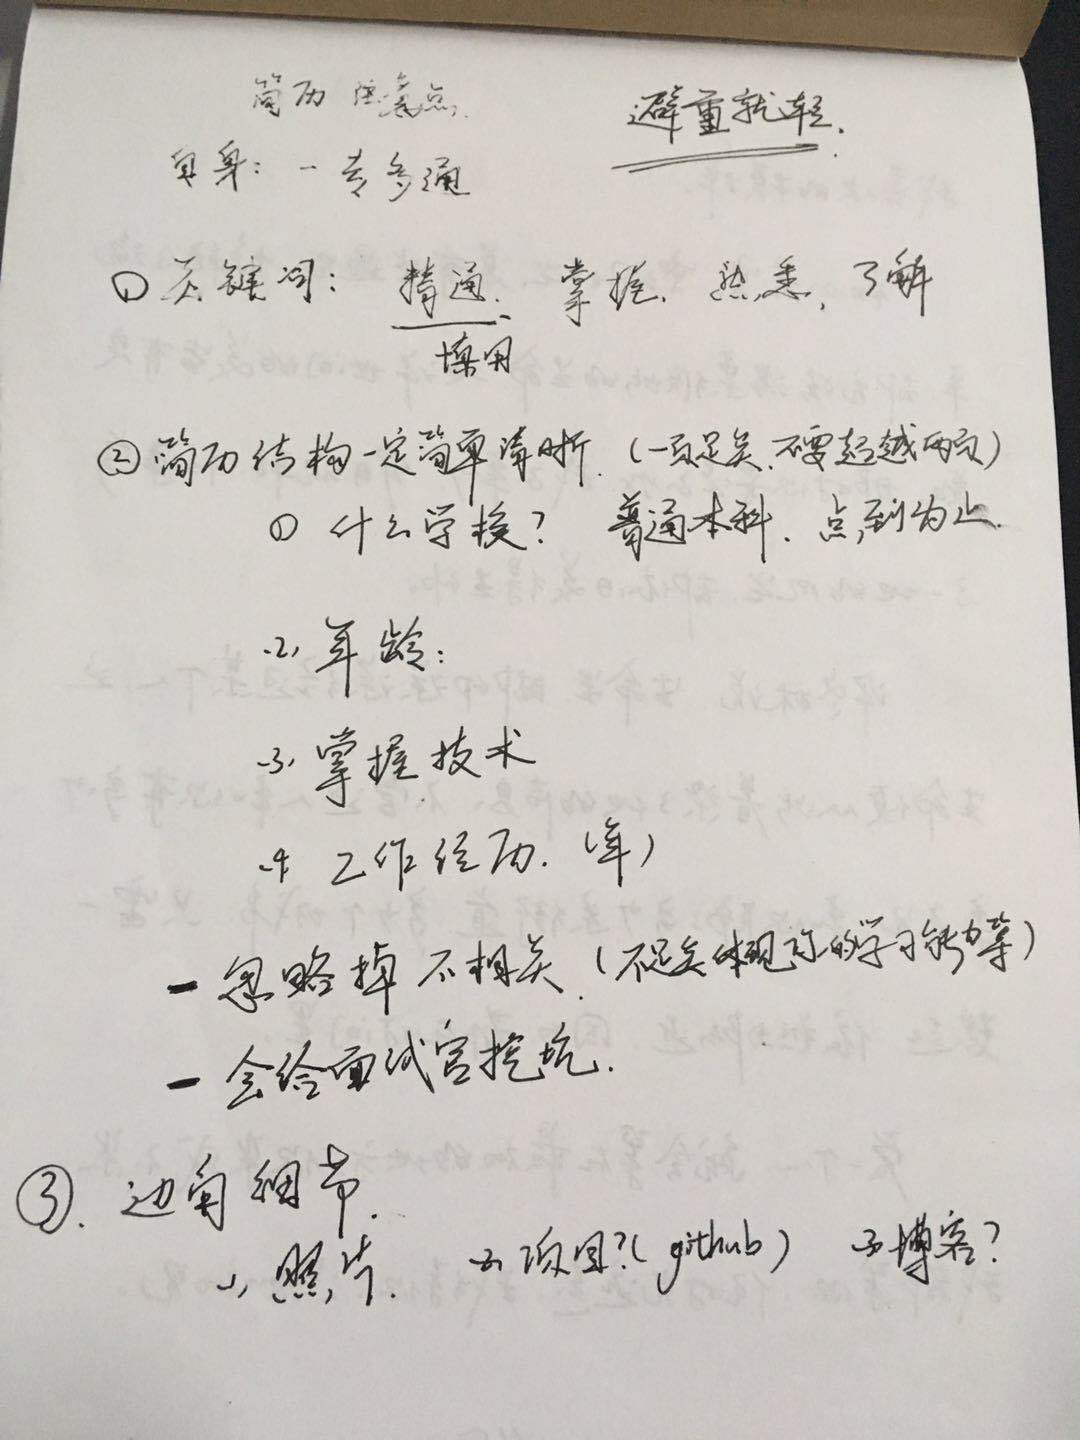 简历 注意点.
避重就轻.
自身: 一专多通
① 关键词: 精通. 掌握. 熟悉, 了解
慎用
② 简历结构一定简单清晰. (一页足矣. 不要超越两页)
① 什么学校? 普通本科. 点到为止.
2, 年龄:
3, 掌握技术
4 工作经历. (年)
- 忽略掉不相关. (不足矣体现你的学习能力等)
- 会给面试官挖坑.
③. 边角细节.
1, 照片. 2, 项目?(github) 3, 博客?